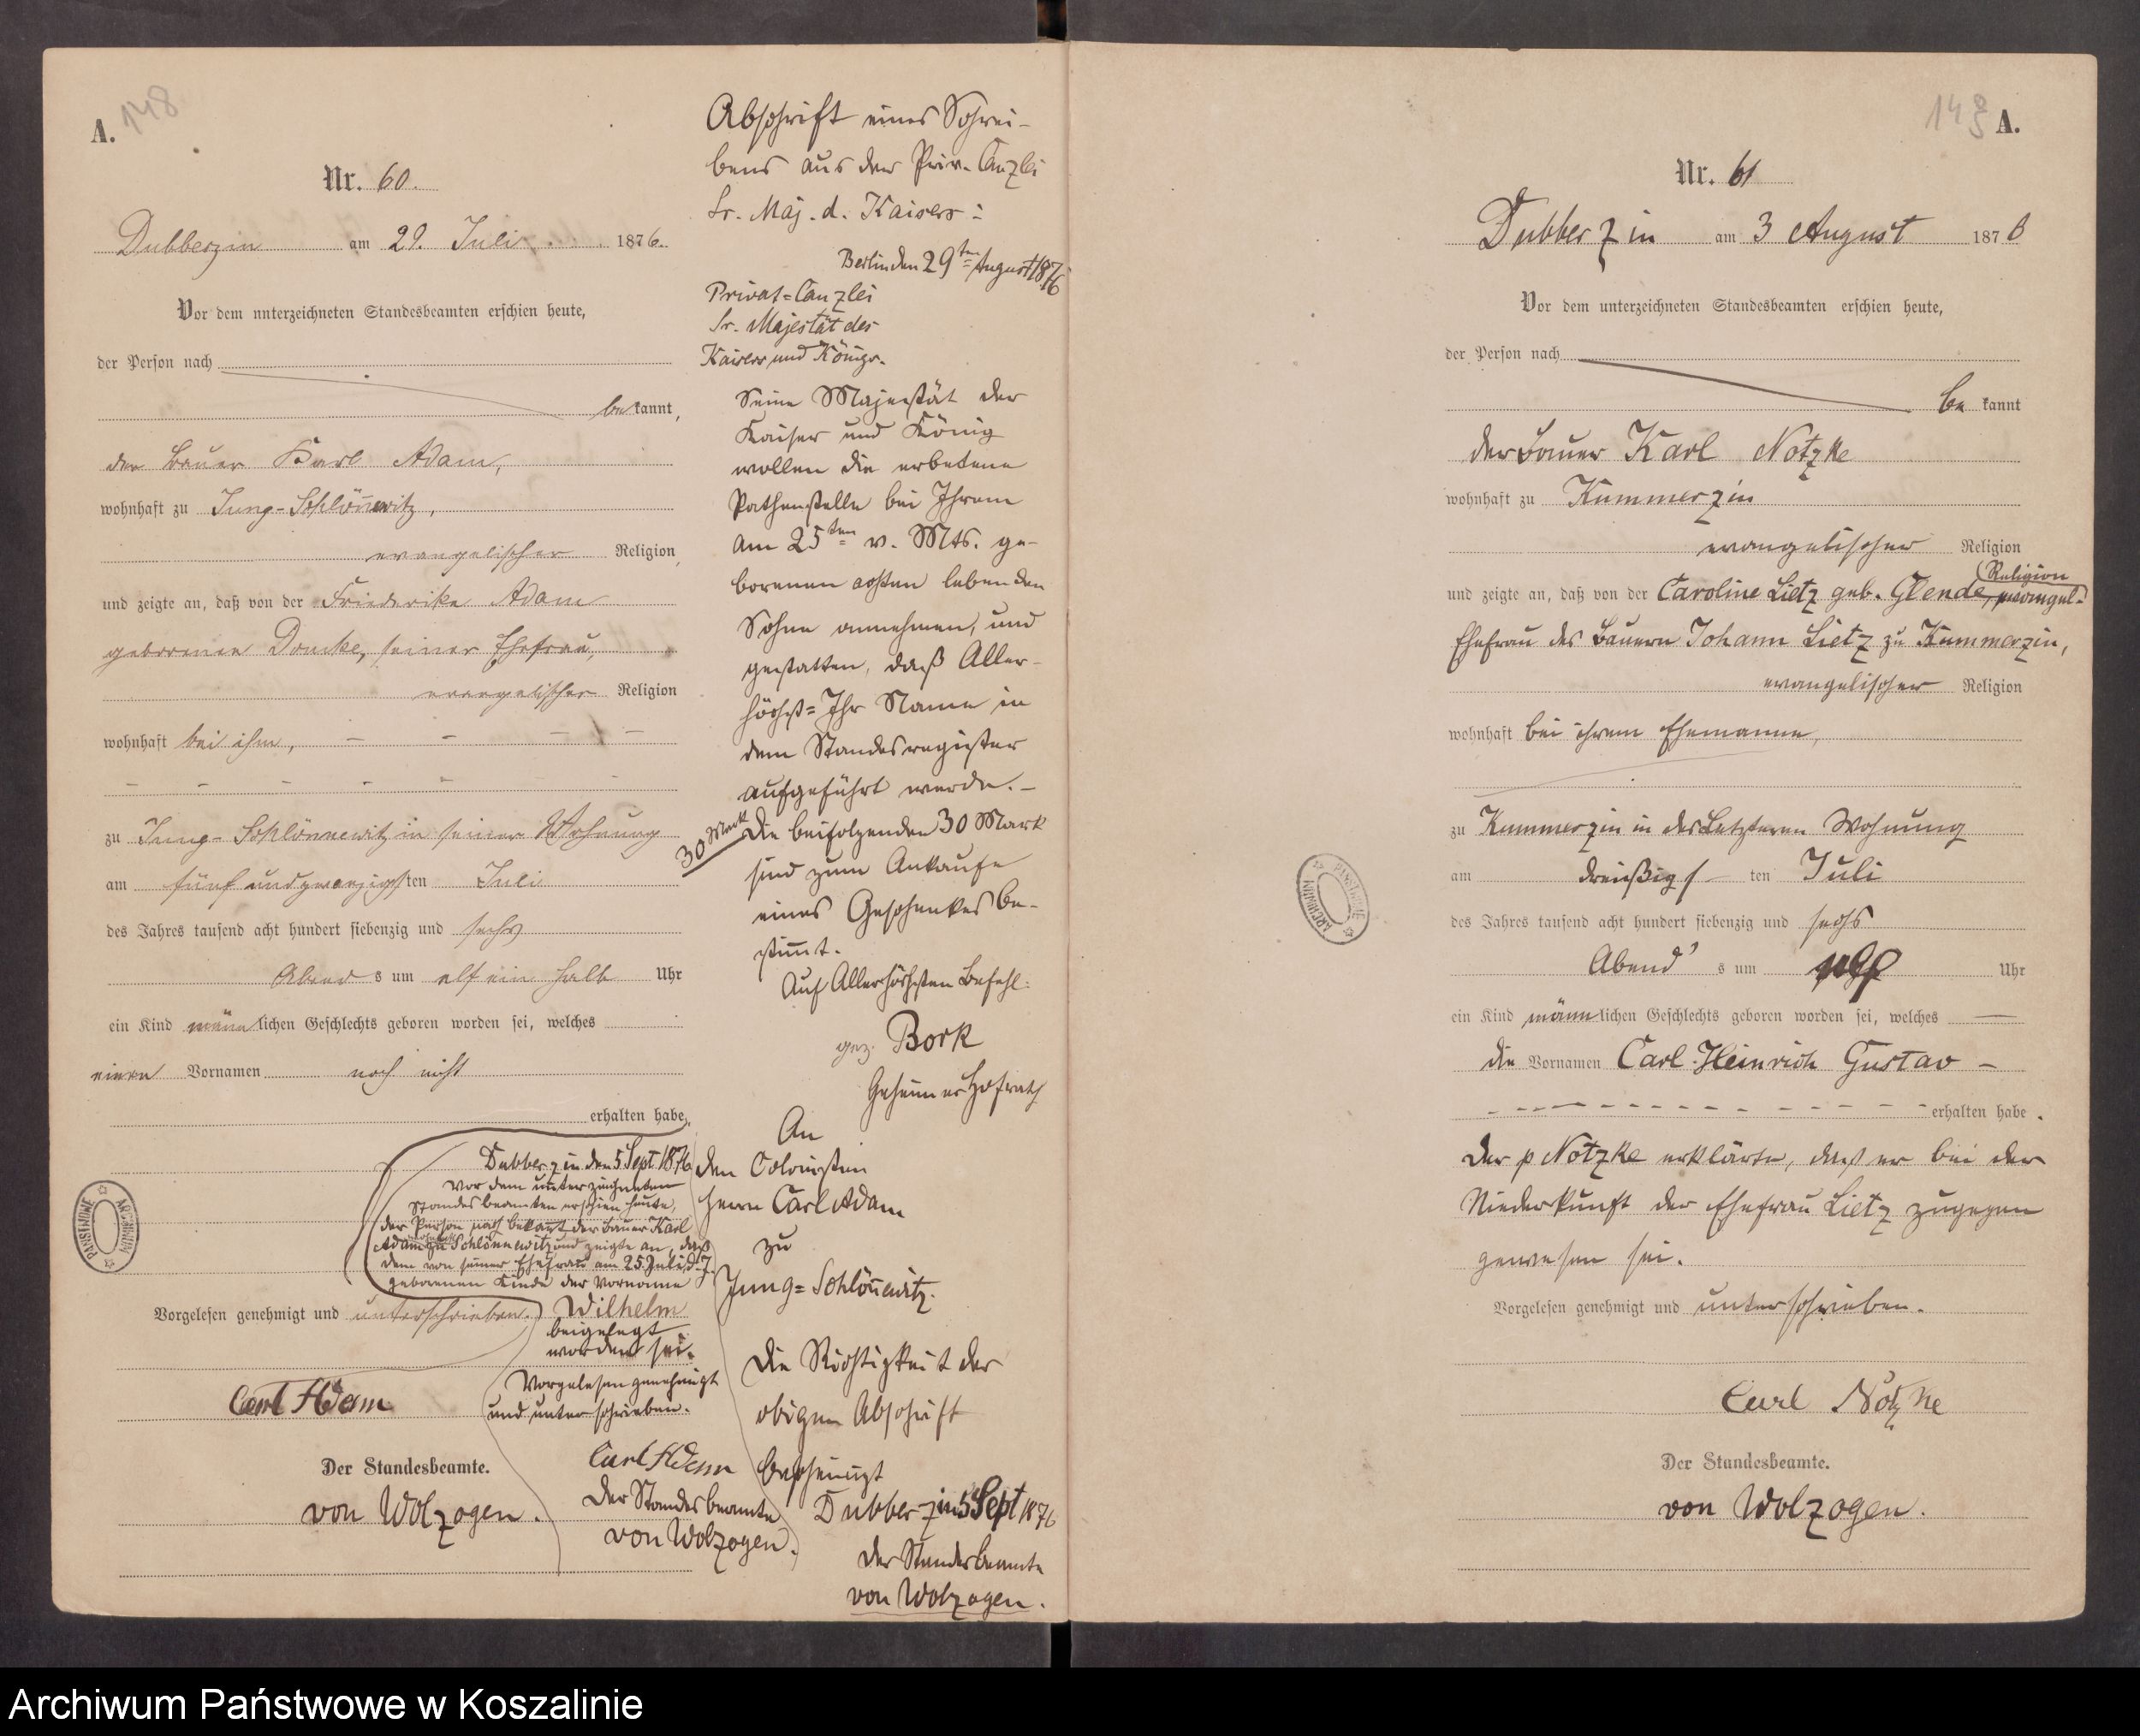 A. 148
Nr. 60.
Dubberzin am 29. Juli 1876.
Vor dem unterzeichneten Standesbeamten erschien heute,
der Person nach
bekannt,
der Bauer Karl Adam,
wohnhaft zu Jung-Schlönnewitz,
evangelischer Religion,
und zeigte an, daß von der Friederike Adam
geborenen seiner Ehefrau,
evangelischer Religion
wohnhaft bei ihm,
zu Jung-Schlönnewitz in seiner Wohnung
am fünf und zwanzigsten Juli
des Jahres tausend acht hundert siebenzig und sechs
Abends um elf ein halb Uhr
ein Kind männlichen Geschlechts geboren worden sei, welches
einen Vornamen noch nicht
erhalten habe.
Dubberzin den 5 Sept 1876
Vor dem unterzeichneten
Standesbeamten erschien heute,
der Person nach bekannt der Bauer Karl
Adam zu Schlönnewitz und zeigte an, daß
dem von seiner Ehefrau am 25 Juli d. J.
geborenen Kinde der Vorname
Vorgelesen genehmigt und unterschrieben. Wilhelm
beigelegt
worden sei.
Vorgelesen genehmigt
und unterschrieben.
Carl Adam
Carl Adam
Der Standesbeamte.
von Wolzogen.
Der Standesbeamte
von Wolzogen.
Abschrift eines Schrei-
bens aus der Priv. Canzlei
Sr. Maj. d. Kaisers:
Berlin den 29ten August 1876
Privat-Canzlei
Sr. Majestät des
Kaisers und Königs.
Seine Majestät der
Kaiser und König
wollen die erbetene
Pathenstelle bei Ihrem
am 25ten v. Mts. ge-
borenen lebenden
Sohne annehmen, und
gestatten, daß Aller-
höchst-Ihr Name in
dem Standesregister
aufgeführt werde.-
30 Mark
Die beifolgenden 30 Mark
sind zum Ankaufe
eines Geschenkes be-
stimt.
Auf Allerhöchsten Befehl:
gez. Bork
Geheimer Hofrath
An
den Colonisten
Herrn Carl Adam
zu
Jung-Schlönewitz.
Die Richtigkeit der
obigen Abschrift
bescheinigt
Dubberzin 5 Sept 1876
Der Standesbeamte
von Wolzogen.
149 A.
Nr. 61
Dubberzin am 3 August 1876
Vor dem unterzeichneten Standesbeamten erschien heute,
der Person nach
bekannt
der Bauer Karl Notzke
wohnhaft zu Kummerzin
evangelischer Religion
Religion
und zeigte an, daß von der Caroline Lietz geb. Glende, evangel.
Ehefrau des Bauern Johann Lietz zu Kummerzin,
evangelischer Religion
wohnhaft bei ihrem Ehemanne,
zu Kummerzin in des Letzteren Wohnung
am dreißigsten Juli
des Jahres tausend acht hundert siebenzig und sechs
Abends um Uhr
ein Kind männlichen Geschlechts geboren worden sei, welches
die Vornamen Carl Heinrich Gustav
erhalten habe.
Der p Notzke erklärte, daß er bei der
Niederkunft der Ehefrau Lietz zugegen
gewesen sei.
Vorgelesen genehmigt und unterschrieben.
Carl Notzke
Der Standesbeamte.
von Wolzogen.
ARCHIWUM PAŃSTWOWE
ARCHIWUM PAŃSTWOWE
Archiwum Państwowe w Koszalinie